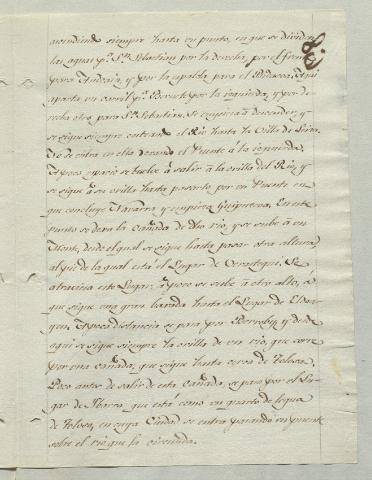 ascendiendo siempre hasta un punto, en que se dividen
las aguas p.ª S.n Sebastian por la derecha, por el frente
para Andoain, y por la espalda para el Bidasoa. Aqui
aparta un carril p.ª por la izquierda, y por de-
recha otro para S.n Sebastian. Se empieza á descender, y
se sigue siempre costeando el Rio hasta la Villa de Leiza.
No se entra en ella dexando el Puente á la izquierda.
A poco espacio se buelve á salir á la orilla del Rio, y
se sigue su orilla hasta pasarlo por un Puente en
que concluye Navarra y empieza Guipuzcoa. En este
punto se dexa la cañada de dho rio, y se sube á un
Monte, desde el qual se sigue hasta pasar otra altura,
al pie de la qual está el Lugar de Verastegui. Se
atraviesa este Lugar, á poco se sube á otro alto, á
que sigue una gran baxada hasta el Lugar de Eldua-
yen. A poca distancia se pasa por Berrobi, y desde
aqui se sigue siempre la orilla de un rio, que corre
por una cañada, que sigue hasta cerca de Tolosa.
Poco antes de salir de esta Cañada, se pasa por el Lu-
gar de Ibarra, que está como un quarto de legua
de Tolosa, en cuya Ciudad se entra pasando un puente
sobre el rio que la circunda.